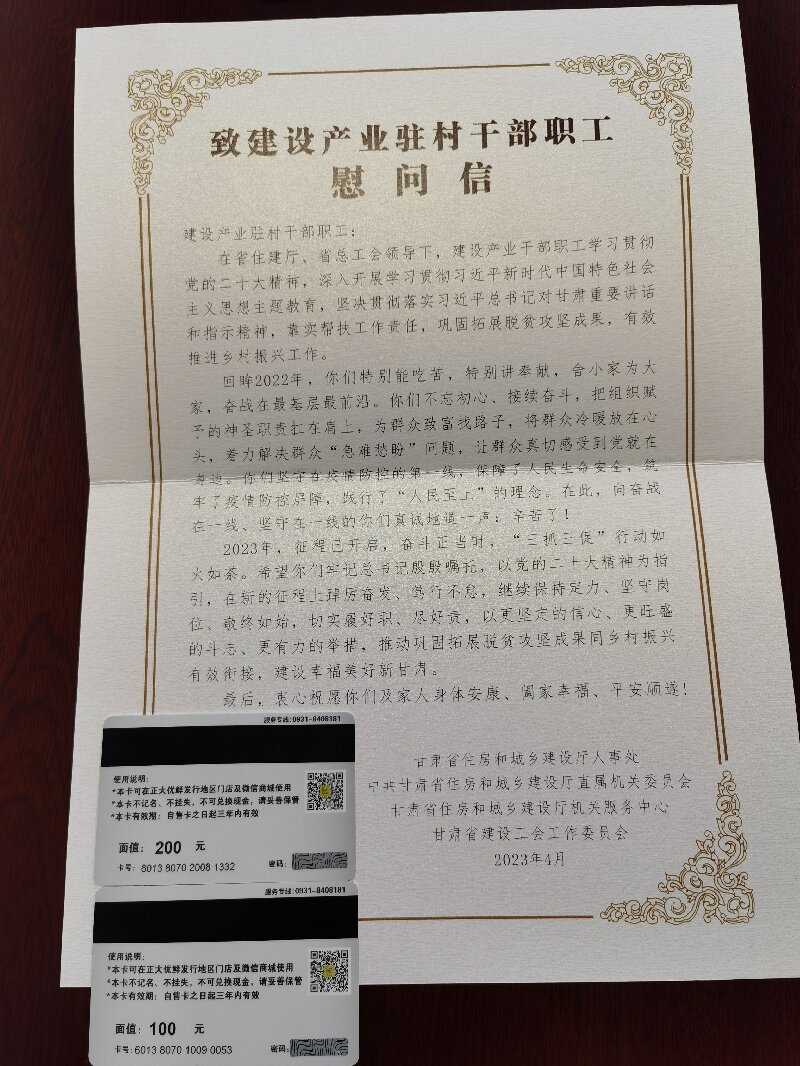 致建设产业驻村干部职工
慰问信
建设产业驻村干部职工：
在省住建厅、省总工会领导下，建设产业干部职工学习贯彻
党的二十大精神，深入开展学习贯彻习近平新时代中国特色社会
主义思想主题教育，坚决贯彻落实习近平总书记对甘肃重要讲话
和指示精神，靠实帮扶工作责任，巩固拓展脱贫攻坚成果，有效
推进乡村振兴工作。
回眸2022年，你们特别能吃苦，特别讲奉献，舍小家为大
家，奋战在最基层最前沿。你们不忘初心、接续奋斗，把组织赋
予的神圣职责扛在肩上，为群众致富找路子，将群众冷暖放在心
头，着力解决群众“急难愁盼”问题，让群众真切感受到党就在
身边。你们坚守在疫情防控的第一线，保障了人民生命安全，筑
牢了疫情防控屏障，践行了“人民至上”的理念。在此，向奋战
在一线、坚守在一线的你们真诚地道一声：辛苦了！
2023年，征程已开启，奋斗正当时，“三抓三促”行动如
火如荼。希望你们牢记总书记殷殷嘱托，以党的二十大精神为指
引，在新的征程上踔厉奋发、笃行不怠，继续保持定力、坚守岗
位、敬终如始，切实履好职、尽好责，以更坚定的信心、更旺盛
的斗志、更有力的举措，推动巩固拓展脱贫攻坚成果同乡村振兴
有效衔接，建设幸福美好新甘肃。
最后，衷心祝愿你们及家人身体安康、阖家幸福、平安顺遂！
甘肃省住房和城乡建设厅人事处
中共甘肃省住房和城乡建设厅直属机关委员会
甘肃省住房和城乡建设厅机关服务中心
甘肃省建设工会工作委员会
2023年4月
服务专线：0931-8408181
使用说明：
*本卡可在正大优鲜发行地区门店及微信商城使用
*本卡不记名、不挂失，不可兑换现金，请妥善保管
*本卡有效期：自售卡之日起三年内有效
面值：200 元
卡号：6013 8070 2008 1332 密码：
服务专线：0931-8408181
使用说明：
*本卡可在正大优鲜发行地区门店及微信商城使用
*本卡不记名、不挂失，不可兑换现金，请妥善保管
*本卡有效期：自售卡之日起三年内有效
面值：100 元
卡号：6013 8070 1009 0053 密码：